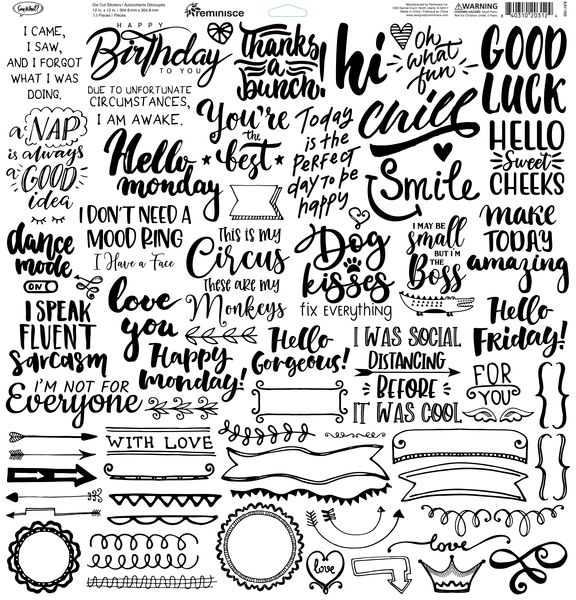 Say What?
Die Cut Stickers | Autocollants Découpés
12 in. x 12 in. | 304.8mm x 304.8mm
51 Pieces | Pièces
reminisce
Manufactured by Reminisce Inc.
WARNING
I CAME,
I SAW,
AND I FORGOT
WHAT I WAS
DOING.
HAPPY
Birthday
TO YOU
Thanks
a
bunch!
hi
oh
what
fun
GOOD
LUCK
DUE TO UNFORTUNATE
CIRCUMSTANCES,
I AM AWAKE.
a NAP
is always
a GOOD
idea
Hello
monday
You're
the
best
Today
is the
PERFECT
day to be
happy
chill
Smile
HELLO
Sweet
CHEEKS
I DON'T NEED A
MOOD RING
I Have a Face
dance
mode
ON
This is my
Circus
These are my
Monkeys
Dog
kisses
fix EVERYTHING
I MAY BE
small
BUT I'M
THE
BOSS
MAKE
TODAY
amazing
I SPEAK
FLUENT
sarcasm
love
you
Happy
monday!
Hello
Gorgeous!
I WAS SOCIAL
DISTANCING
BEFORE
IT WAS COOL
Hello
Friday!
I'M NOT FOR
Everyone
FOR
YOU
WITH LOVE
love
love